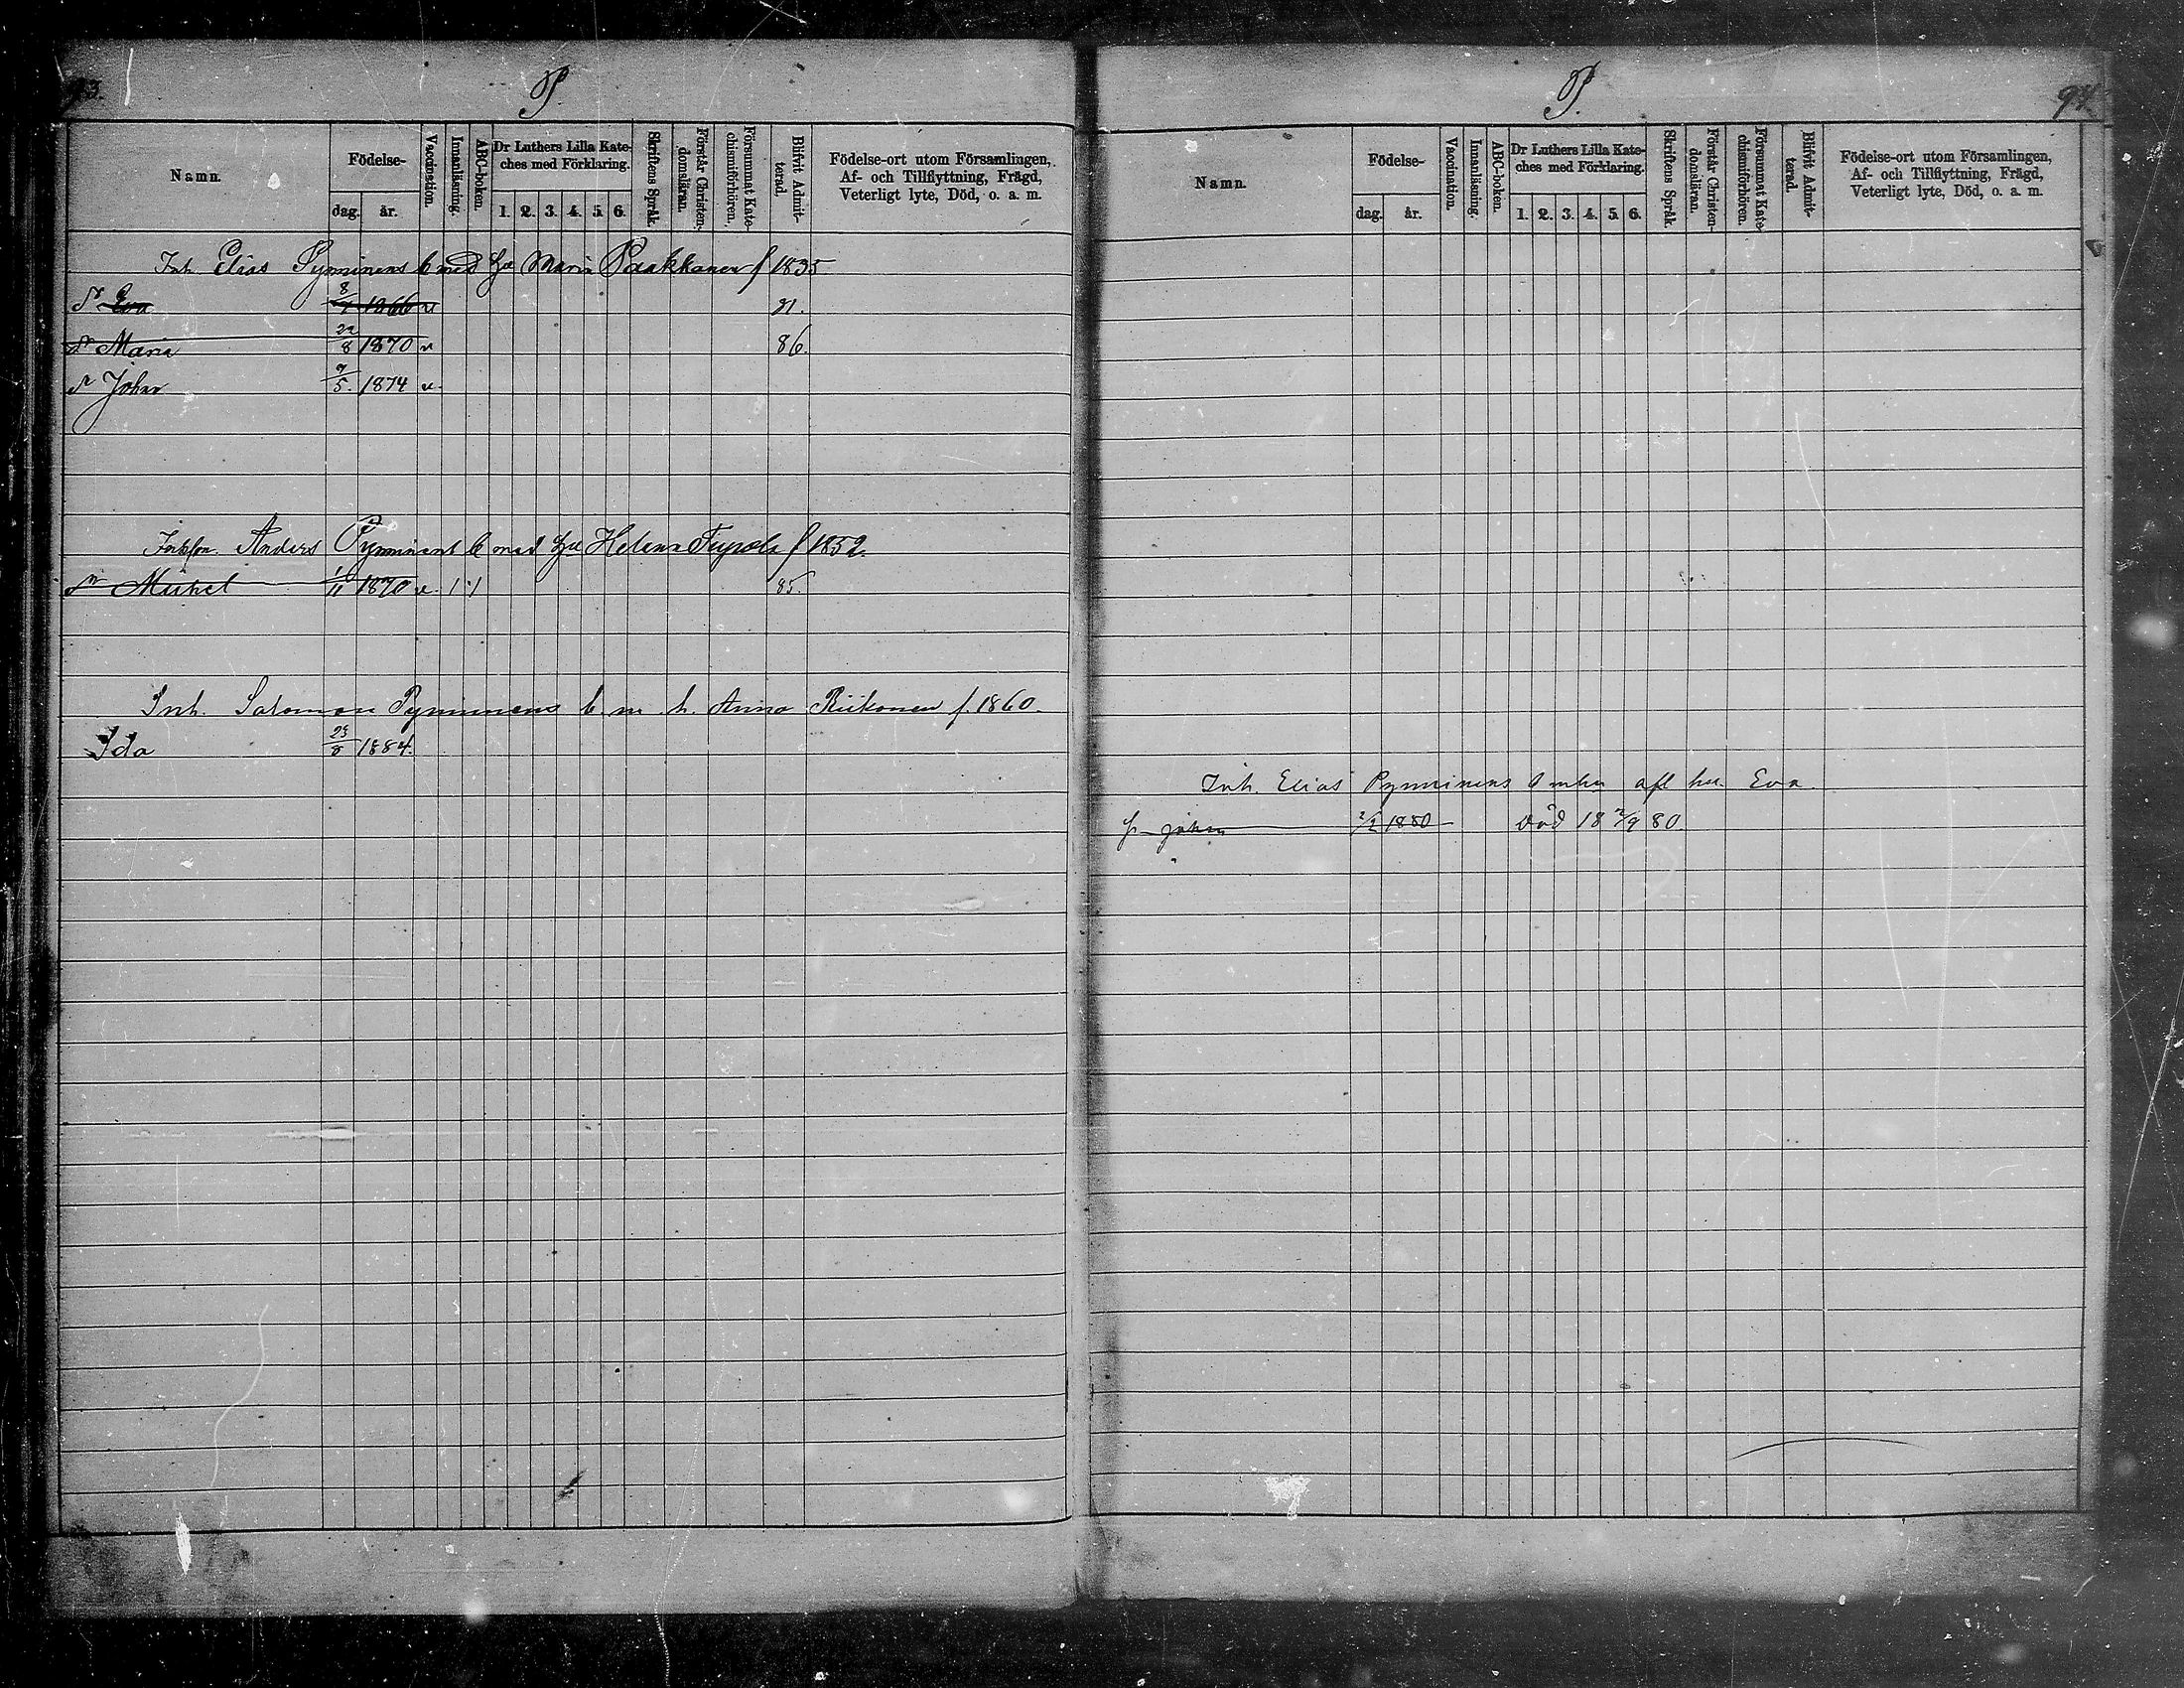 93.
P.
Namn.
Födelse-
dag. år.
Vaccination.
Innanläsning.
ABC-boken.
Dr Luthers Lilla Kate-
ches med Förklaring.
1. 2. 3. 4. 5. 6.
Skriftens Språk.
Förstår Christen-
domsläran.
Försummat Kate-
chismiförhören.
Blifvit Admit-
terad.
Födelse-ort utom Församlingen,
Af- och Tillflyttning, Frägd,
Veterligt lyte, Död, o. a. m.
Inh. Elias Pynninens b med hu Maria Paakkanen f 1835
Eva 8/7 1866 v 81.
Maria 22/8 1870 v 86.
Johan 7/5. 1874 v.
Anders Pynninens b med hu Helena f 1852.
Mickel 1/11 1870 v. 85.
Inh. Salomon Pynninens b. m. h. Anna Riikonen f. 1860.
Ida 23/8 1884.
P.
94.
Namn.
Födelse-
dag. år.
Vaccination.
Innanläsning.
ABC-boken.
Dr Luthers Lilla Kate-
ches med Förklaring.
1. 2. 3. 4. 5. 6.
Skriftens Språk.
Förstår Christen-
domsläran.
Försummat Kate-
chismiförhören.
Blifvit Admit-
terad.
Födelse-ort utom Församlingen,
Af- och Tillflyttning, Frägd,
Veterligt lyte, Död, o. a. m.
Inh. Elias Pynninens afl hu. Eva.
Johan 2/2 1880 Död 18 2/9 80.